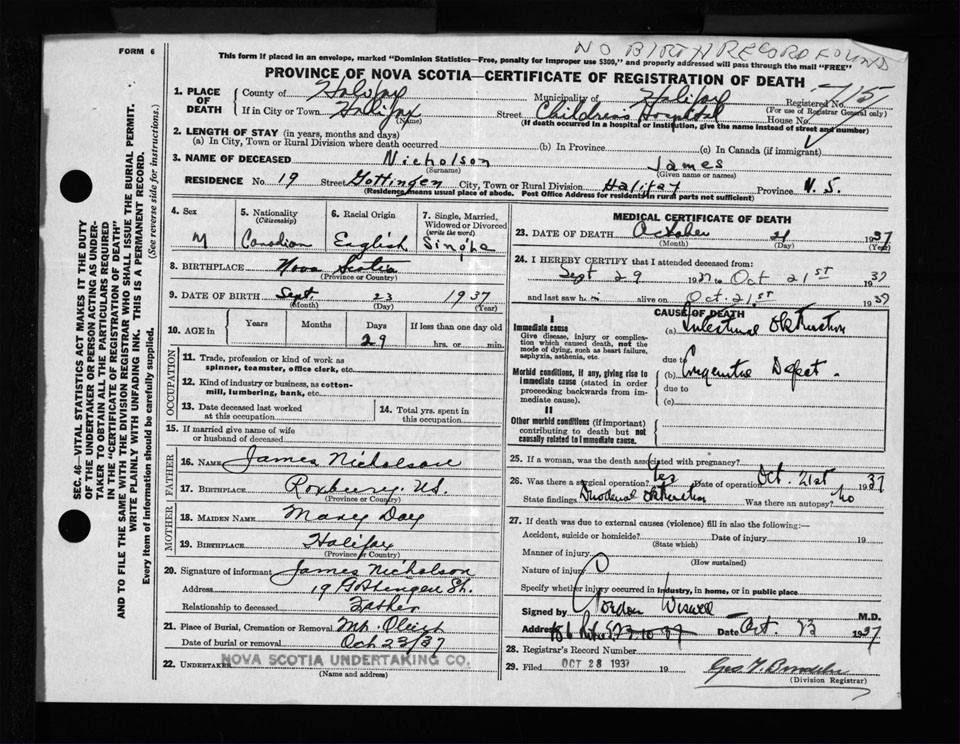 NO BIRTH RECORD FOUND
FORM 6
This form if placed in an envelope, marked "Dominion Statistics—Free, penalty for improper use $300," and properly addressed will pass through the mail "FREE"
PROVINCE OF NOVA SCOTIA—CERTIFICATE OF REGISTRATION OF DEATH
1. PLACE OF DEATH
County of Halifax Municipality of Halifax Registered No. 715
(For use of Registrar General only)
If in City or Town Halifax Street Childrens Hospital House No.
(Name) (If death occurred in a hospital or institution, give the name instead of street and number)
2. LENGTH OF STAY (in years, months and days)
(a) In City, Town or Rural Division where death occurred (b) In Province (c) In Canada (if immigrant)
3. NAME OF DECEASED Nicholson James
(Surname) (Given name or names)
RESIDENCE No. 19 Street Gottingen City, Town or Rural Division Halifax Province N.S.
(Residence means usual place of abode. Post Office Address for residents in rural parts not sufficient)
4. Sex M
5. Nationality (Citizenship) Canadian
6. Racial Origin English
7. Single, Married, Widowed or Divorced (write the word) Single
8. BIRTHPLACE Nova Scotia
(Province or Country)
9. DATE OF BIRTH Sept. 23 1937
(Month) (Day) (Year)
10. AGE in Years Months Days 29 If less than one day old hrs. or min.
OCCUPATION
11. Trade, profession or kind of work as spinner, teamster, office clerk, etc.
12. Kind of industry or business, as cotton-mill, lumbering, bank, etc.
13. Date deceased last worked at this occupation
14. Total yrs. spent in this occupation
15. If married give name of wife or husband of deceased
FATHER
16. NAME James Nicholson
17. BIRTHPLACE Roxbury, US.
(Province or Country)
MOTHER
18. MAIDEN NAME Mary Day
19. BIRTHPLACE Halifax
(Province or Country)
20. Signature of informant James Nicholson
Address 19 Gottingen St.
Relationship to deceased Father
21. Place of Burial, Cremation or Removal Mt. Olivet
Date of burial or removal Oct 23/37
22. UNDERTAKER NOVA SCOTIA UNDERTAKING CO.
(Name and address)
MEDICAL CERTIFICATE OF DEATH
23. DATE OF DEATH October 21 1937
(Month) (Day) (Year)
24. I HEREBY CERTIFY that I attended deceased from:
Sept 29 1937 to Oct 21ST 1937
and last saw him alive on Oct. 21.ST 1937
CAUSE OF DEATH
I
Immediate cause
Give disease, injury or complication which caused death, not the mode of dying, such as heart failure, asphyxia, asthenia, etc.
(a) Intestinal Obstruction
due to
Morbid conditions, if any, giving rise to immediate cause (stated in order proceeding backwards from immediate cause)
(b) Congenital Defect.
due to
(c)
II
Other morbid conditions (if important) contributing to death but not causally related to immediate cause.
25. If a woman, was the death associated with pregnancy?
26. Was there a surgical operation? Yes Date of operation Oct. 21st 1937
State findings Duodenal obstruction Was there an autopsy? no
27. If death was due to external causes (violence) fill in also the following:—
Accident, suicide or homicide? Date of injury 19
(State which)
Manner of injury
(How sustained)
Nature of injury
Specify whether injury occurred in industry, in home, or in public place
Signed by Gordon Wiswell M.D.
Address Date Oct. 23 1937
28. Registrar's Record Number
29. Filed OCT 28 1937 19
(Division Registrar)
SEC. 46—VITAL STATISTICS ACT MAKES IT THE DUTY
OF THE UNDERTAKER OR PERSON ACTING AS UNDER-
TAKER TO OBTAIN ALL THE PARTICULARS REQUIRED
IN THE "CERTIFICATE OF REGISTRATION OF DEATH"
AND TO FILE THE SAME WITH THE DIVISION REGISTRAR WHO SHALL ISSUE THE BURIAL PERMIT.
WRITE PLAINLY WITH UNFADING INK. THIS IS A PERMANENT RECORD.
Every item of information should be carefully supplied. (See reverse side for instructions.)